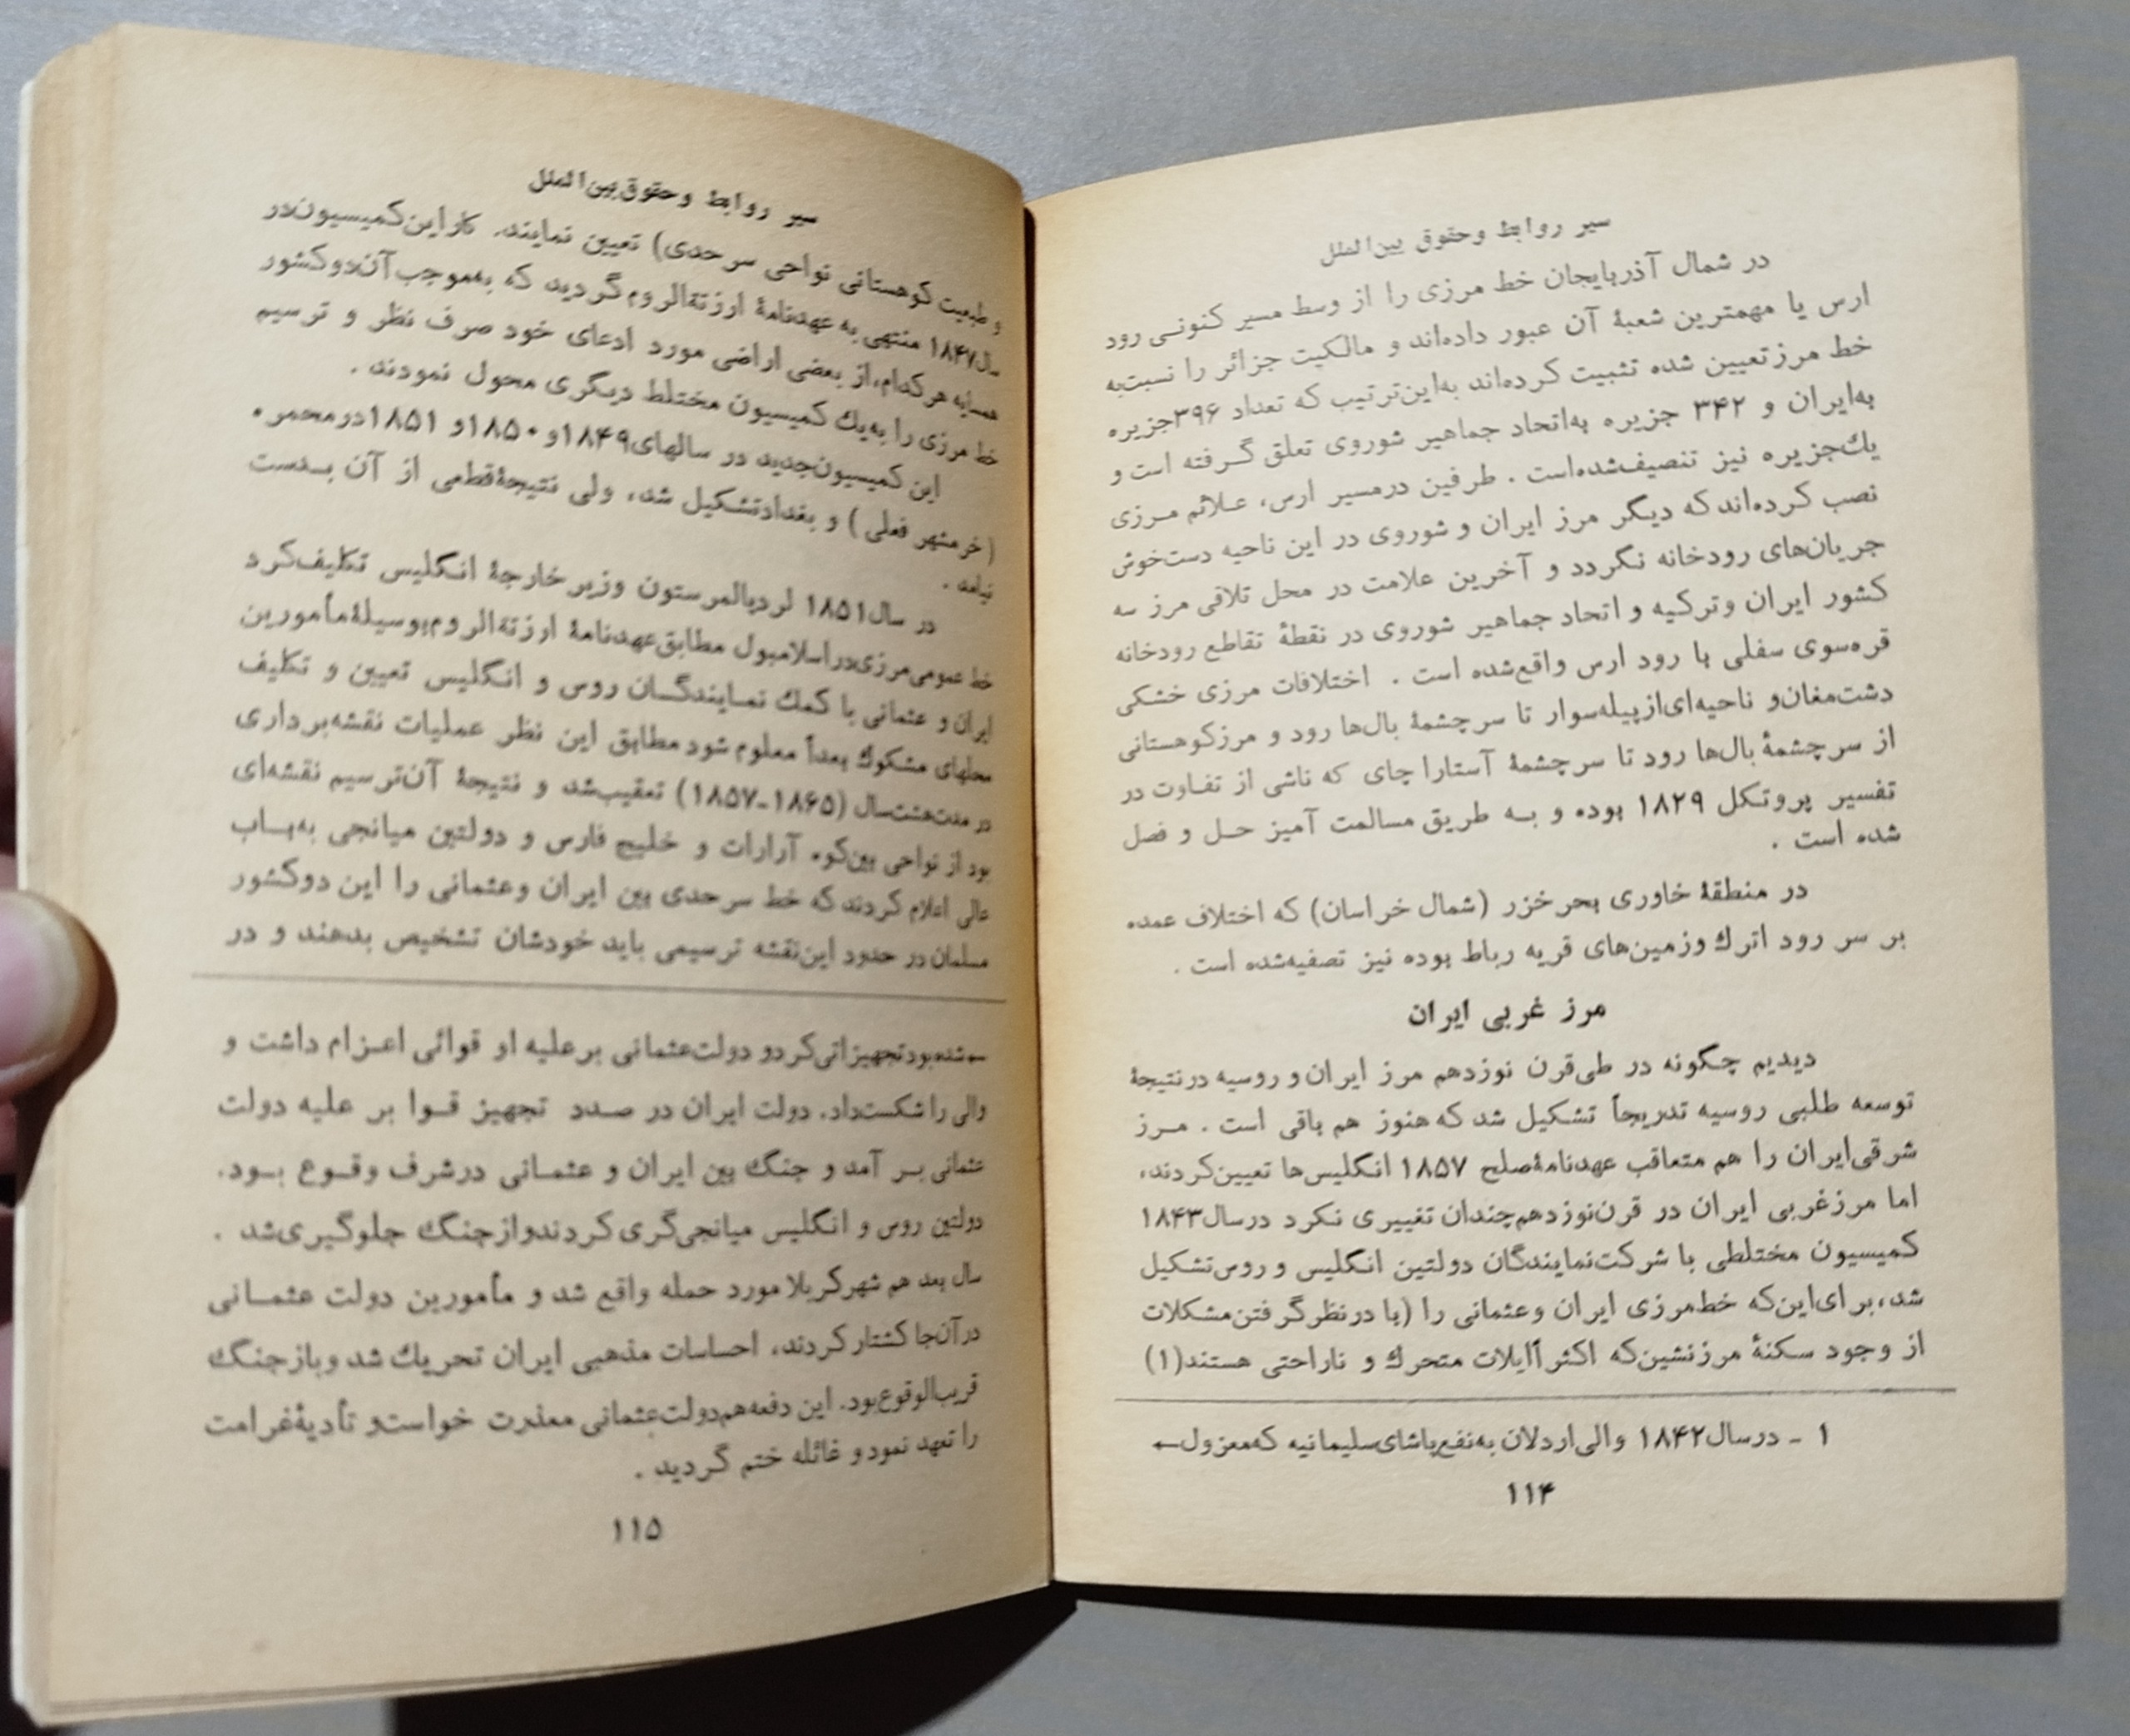 سیر روابط وحقوق بین‌الملل
در شمال آذربایجان خط مرزی را از وسط مسیر کنونی رود
ارس یا مهمترین شعبهٔ آن عبور داده‌اند و مالکیت جزائر را نسبت‌به
خط مرزتعیین شده تثبیت کرده‌اند به‌این‌ترتیب که تعداد ۳۹۶جزیره
به‌ایران و ۳۴۲ جزیره به‌اتحاد جماهیر شوروی تعلق گرفته است و
یك‌جزیره نیز تنصیف‌شده‌است . طرفین درمسیر ارس، علائم مرزی
نصب کرده‌اندکه دیگر مرز ایران و شوروی در این ناحیه دست‌خوش
جریان‌های رودخانه نگردد و آخرین علامت در محل تلاقی مرز سه
کشور ایران وترکیه و اتحاد جماهیر شوروی در نقطهٔ تقاطع رودخانه
قره‌سوی سفلی با رود ارس واقع‌شده است . اختلافات مرزی خشکی
دشت‌مغان‌و ناحیه‌ای‌ازپیله‌سوار تا سرچشمهٔ بال‌ها رود و مرزکوهستانی
از سرچشمهٔ بال‌ها رود تا سرچشمهٔ آستارا چای که ناشی از تفاوت در
تفسیر پروتکل ۱۸۲۹ بوده و به طریق مسالمت آمیز حل و فصل
شده است .
در منطقهٔ خاوری بحرخزر (شمال خراسان) که اختلاف عمده
بر سر رود اترك وزمین‌های قریه رباط بوده نیز تصفیه‌شده است .
مرز غربی ایران
دیدیم چگونه در طی‌قرن نوزدهم مرز ایران‌و روسیه درنتیجهٔ
توسعه طلبی روسیه تدریجاً تشکیل شد که هنوز هم باقی است . مرز
شرقی‌ایران را هم متعاقب عهدنامهٔ‌صلح ۱۸۵۷ انگلیس‌ها تعیین‌کردند،
اما مرزغربی ایران در قرن‌نوزدهم‌چندان تغییری نکرد درسال۱۸۴۳
کمیسیون مختلطی با شرکت‌نمایندگان دولتین انگلیس و روس‌تشکیل
شد،برای‌این‌که خط‌مرزی ایران وعثمانی را (با درنظرگرفتن‌مشکلات
از وجود سکنهٔ مرزنشین‌که اکثراًایلات متحرك و ناراحتی هستند(۱)
۱ ـ درسال۱۸۴۲ والی‌اردلان به‌نفع‌پاشای‌سلیمانیه که‌معزول←
۱۱۴
سیر روابط وحقوق‌بین‌الملل
و طبیعت کوهستانی نواحی سرحدی) تعیین نمایند. کاراین‌کمیسیون‌در
سال۱۸۴۷ منتهی به عهدنامهٔ ارزنةالروم‌گردید که به‌موجب‌آن‌دوکشور
همسایه هرکدام،از بعضی اراضی مورد ادعای خود صرف نظر و ترسیم
خط مرزی را به‌یك کمیسیون مختلط دیگری محول نمودند .
این کمیسیون‌جدید در سالهای۱۸۴۹و۱۸۵۰و ۱۸۵۱درمحمره
(خرمشهر فعلی ) و بغدادتشکیل شد، ولی نتیجهٔ‌قطعی از آن بدست
نیامد .
در سال۱۸۵۱ لردپالمرستون وزیرخارجهٔ انگلیس تکلیف‌کرد
خط عمومی‌مرزی‌دراسلامبول مطابق‌عهدنامهٔ ارزنةالروم‌بوسیلهٔ‌مأمورین
ایران‌و عثمانی با کمك نمایندگان روس و انگلیس تعیین و تکلیف
محلهای مشکوك بعداً معلوم شود مطابق این نظر عملیات نقشه‌برداری
در مدت‌هشت‌سال (۱۸۶۵-۱۸۵۷) تعقیب‌شد و نتیجهٔ آن‌ترسیم نقشه‌ای
بود از نواحی بین‌کوه آرارات و خلیج فارس و دولتین میانجی به‌باب
عالی اعلام کردندکه خط سرحدی بین ایران وعثمانی را این دوکشور
مسلمان در حدود این‌نقشه ترسیمی باید خودشان تشخیص بدهند و در
←شده‌بودتجهیزاتی‌کردو دولت‌عثمانی برعلیه او قوائی اعزام داشت و
والی را شکست‌داد. دولت ایران در صدد تجهیز قوا بر علیه دولت
عثمانی بر آمد و جنگ بین ایران و عثمانی درشرف وقوع بود.
دولتین روس و انگلیس میانجی‌گری کردندوازجنگ جلوگیری‌شد .
سال بعد هم شهرکربلا مورد حمله واقع شد و مأمورین دولت عثمانی
درآن‌جا کشتارکردند، احساسات مذهبی ایران تحریك شد وبازجنگ
قریب‌الوقوع‌بود. این دفعه‌هم‌دولت‌عثمانی معذرت خواست‌و تأدیهٔ‌غرامت
را تعهد نمود و غائله ختم گردید .
۱۱۵